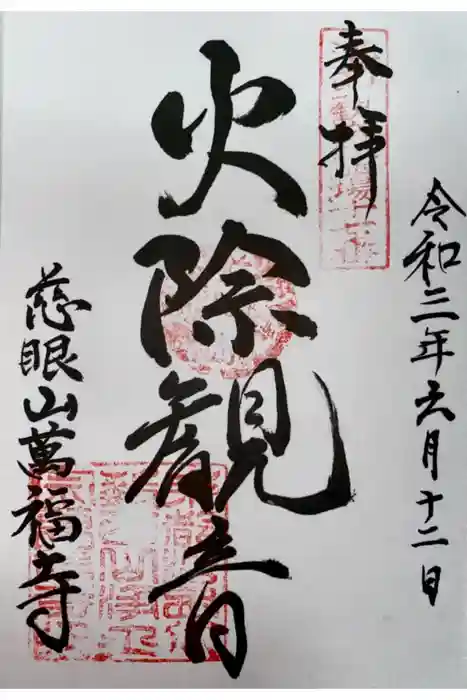 奉拝
令和三年六月十二日
火除観音
慈眼山萬福寺